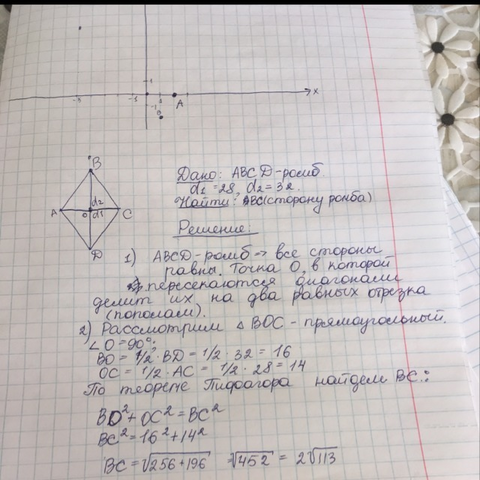 1
-3 -1 1 2 A x
-1
B
B
A O d2 d1 C
D
Дано: ABCD-ромб
d1=28, d2=32.
Найти: BC(сторону ромба)
Решение:
1) ABCD-ромб -> все стороны
равны. Точка O, в которой
пересекаются диагонали
делит их на два равных отрезка
(пополам).
2) Рассмотрим △ BOC - прямоугольный.
∠O=90°.
BO = 1/2·BD = 1/2·32 = 16
OC = 1/2·AC = 1/2·28 = 14
По теореме Пифагора найдем BC:
BO²+OC²=BC²
BC²=16²+14²
BC=√256+196 √452 = 2√113